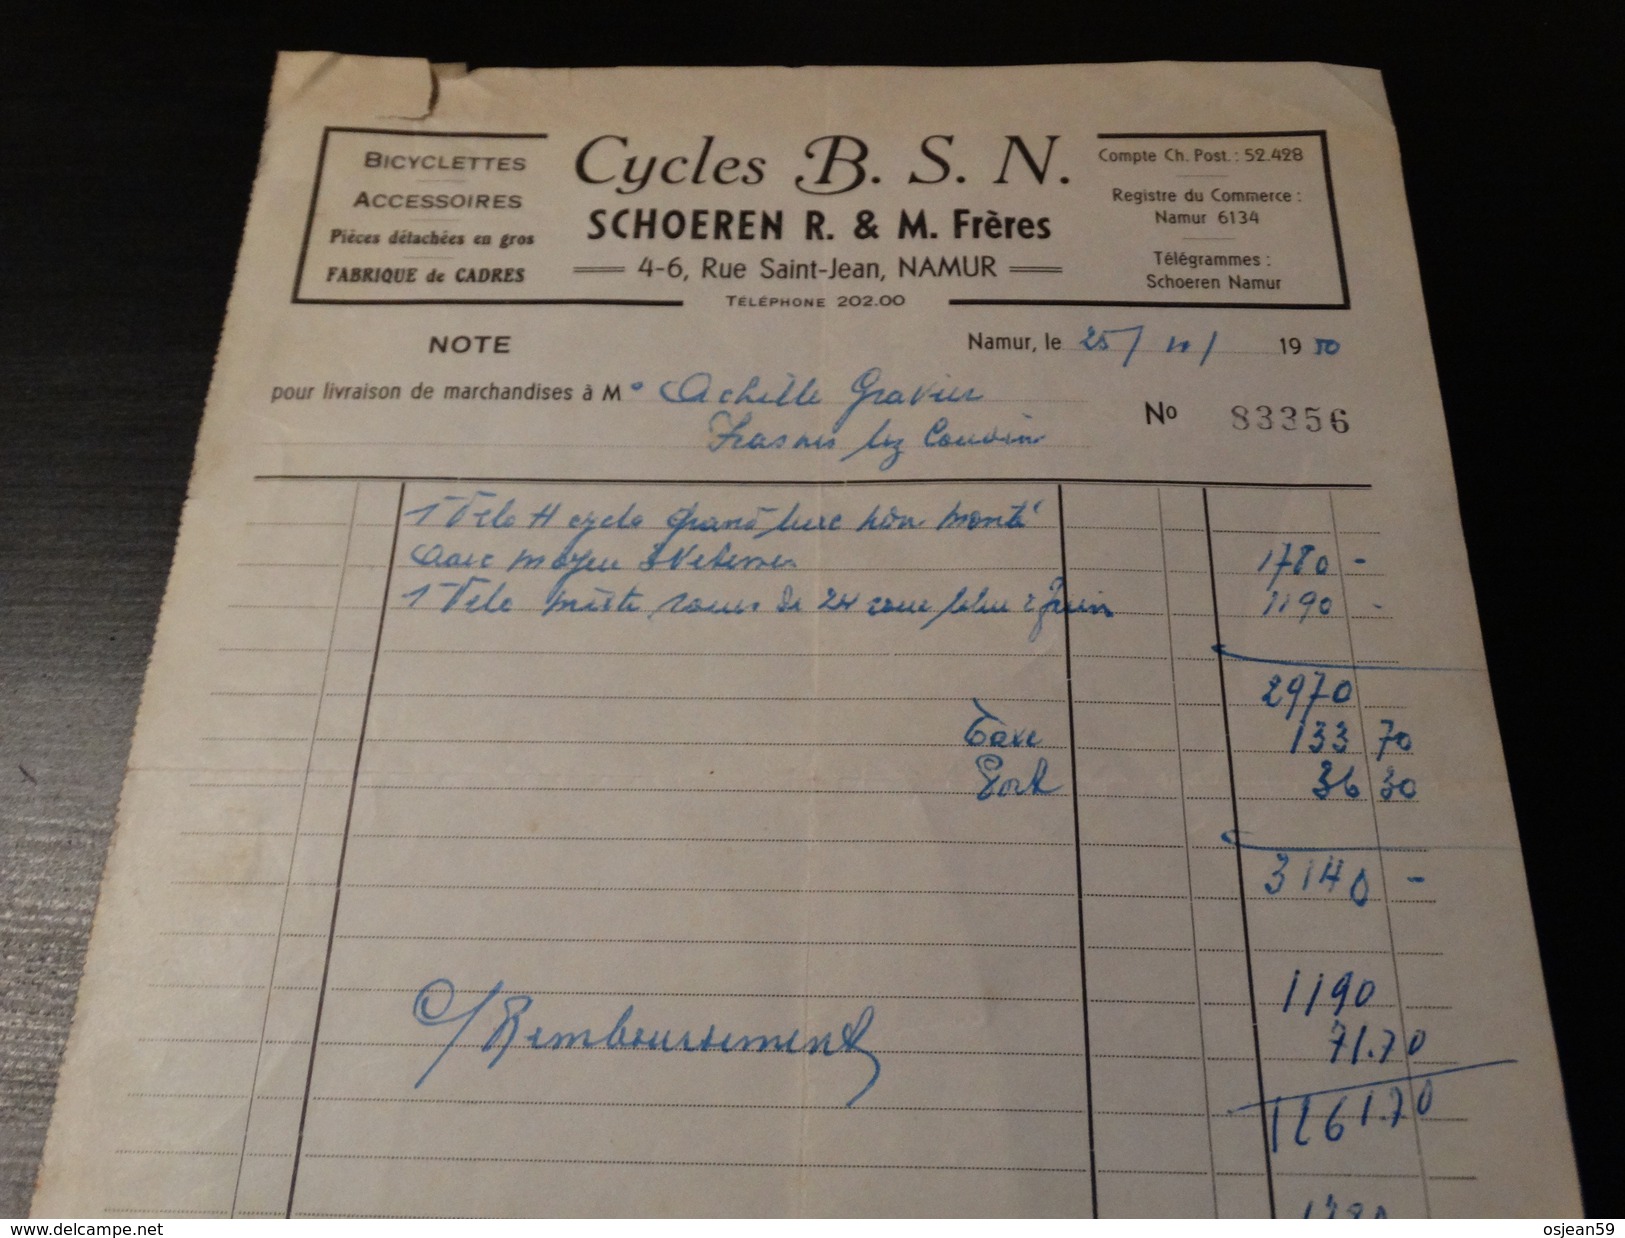 BICYCLETTES
ACCESSOIRES
Pièces détachées en gros
FABRIQUE de CADRES
Cycles B. S. N.
SCHOEREN R. & M. Frères
4-6, Rue Saint-Jean, NAMUR
TÉLÉPHONE 202.00
Compte Ch. Post. : 52.428
Registre du Commerce :
Namur 6134
Télégrammes :
Schoeren Namur
NOTE
Namur, le 25/ /1950
pour livraison de marchandises à Mr Achille Gravier
No 83356
lez Couvin
1 Velo H cyclo grand luxe non monté
avec moyeu 1780 -
1 Velo mixte roues de 24 bleu 1190 -
2970
Taxe 133 70
Port 36 30
3140 -
1190
C/Remboursement 71.70
1261.70
delcampe.net
osjean59